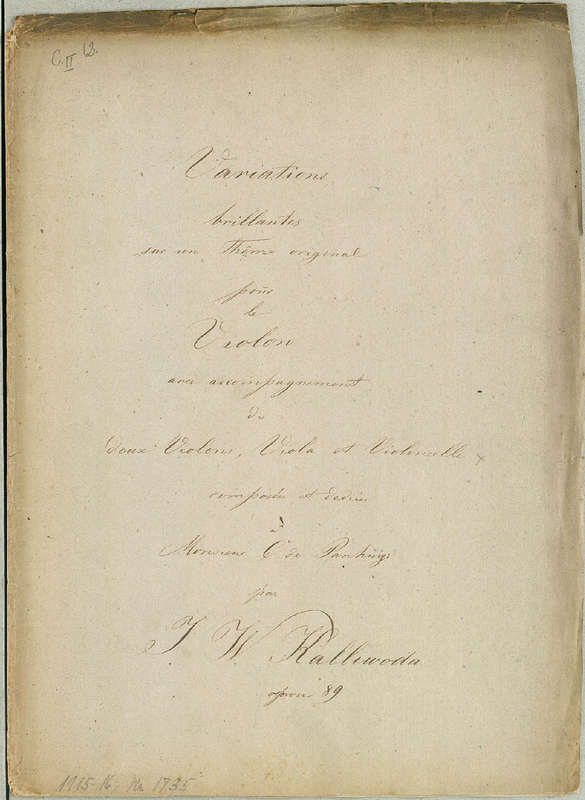 C. II 12.
Variations
brillantes
sur un Thême original
pour
le
Violon
avec accompagnement
de
deux Violons, Viola et Violoncelle
composées et dediées
à
Monsieur C de Pankuÿs
par
J W Kalliwoda
œuvre 89
1915-16, Nr 1735